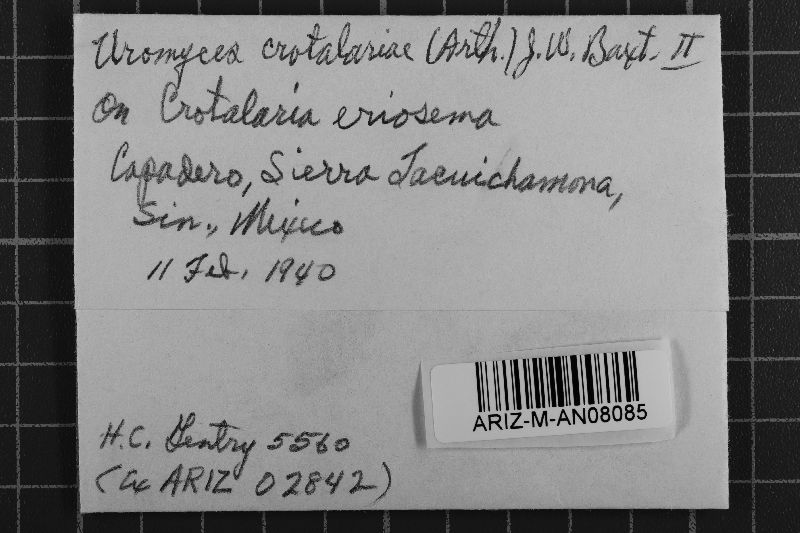 Uromyces crotalariae (Arth.) J.W. Baxt. II
On Crotalaria eriosema
Capadero, Sierra Tacuichamona,
Sin., Mexico
11 Feb. 1940
H.C. Gentry 5560
(Ex ARIZ 02842)
ARIZ-M-AN08085